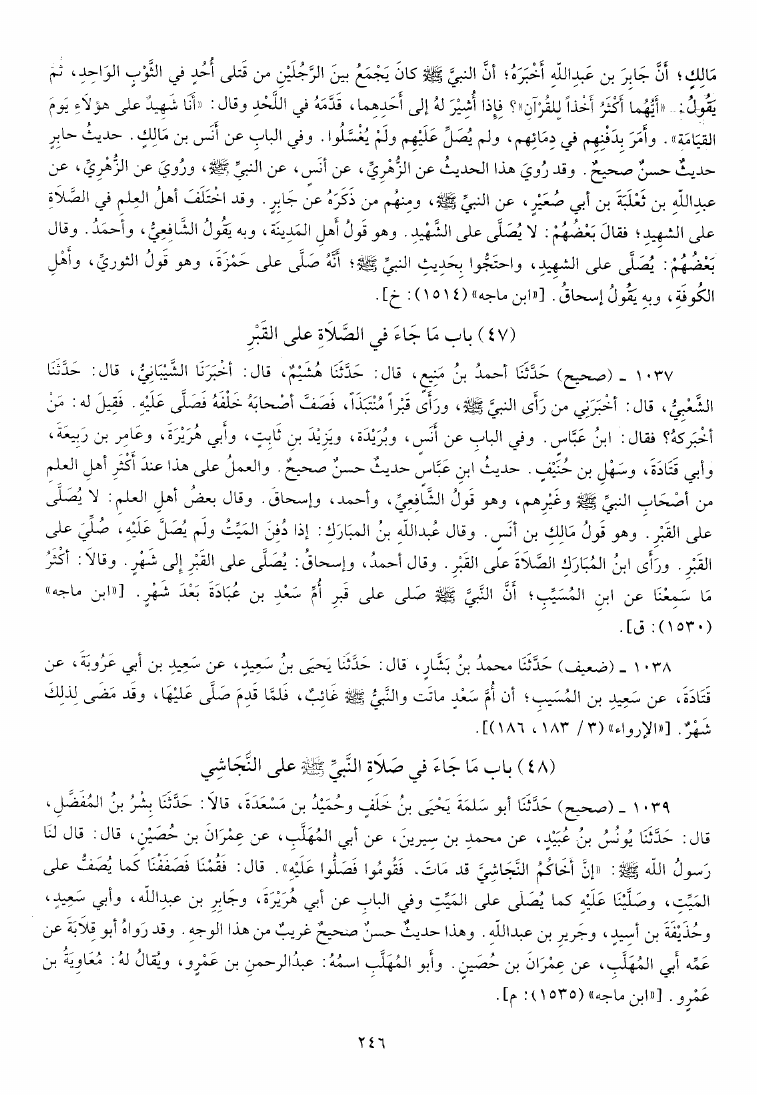 مَالِكٍ؛ أَنَّ جَابِرَ بن عَبدِاللّهِ أَخْبَرَهُ؛ أنَّ النبيَّ ﷺ كانَ يَجْمَعُ بينَ الرَّجُلَيْنِ من قَتلى أُحُدٍ في الثَّوْبِ الوَاحِدِ، ثُمَّ
يَقُولُ: «أَيُّهُما أَكْثَرُ أَخْذاً لِلقُرْآنِ»؟ فإذا أُشِيْرَ لهُ إلى أحَدِهِما، قَدَّمَهُ في اللَّحْدِ وقال: «أَنَا شَهِيدٌ على هؤلاءِ يَومَ
القِيَامَةِ». وأمَرَ بِدَفْنِهِم في دِمَائِهِم، ولم يُصَلِّ عَلَيْهِم ولَمْ يُغْسَّلُوا. وفي البابِ عن أنَس بن مَالِكٍ. حديثُ جابِرٍ
حديثٌ حسنٌ صحيحٌ. وقد رُوِيَ هذا الحديثُ عن الزُّهْرِيِّ، عن أنَسٍ، عن النبيِّ ﷺ، ورُوِيَ عن الزُّهْرِيِّ، عن
عبدِاللّهِ بن ثَعْلَبَةَ بن أبي صُعَيْرٍ، عن النبيِّ ﷺ، ومِنهُم من ذَكَرَهُ عن جَابِرٍ. وقد اخْتَلَفَ أهلُ العِلمِ في الصَّلَاةِ
على الشهيدِ؛ فقالَ بَعْضُهُمْ: لا يُصَلَّى على الشَّهِيْدِ. وهو قَولُ أهلِ المَدِينَةِ، وبه يَقُولُ الشَّافِعِيُّ، وأحمَدُ. وقال
بَعْضُهُمْ: يُصَلَّى على الشهيدِ، واحتَجُّوا بِحَدِيثِ النبيِّ ﷺ؛ أَنَّهُ صَلَّى على حَمْزَةَ، وهو قَولُ الثوريِّ، وأهْلِ
الكُوفَةِ، وبهِ يَقُولُ إسحاقُ. [«ابن ماجه» (١٥١٤): خ].
(٤٧) باب مَا جَاءَ في الصَّلَاةِ على القَبْرِ
١٠٣٧ ـ (صحيح) حَدَّثَنَا أحمدُ بنُ مَنِيعٍ، قال: حَدَّثَنَا هُشَيْمٌ، قال: أخْبَرَنَا الشَّيْبَانِيُّ، قال: حَدَّثَنَا
الشَّعْبِيُّ، قال: أخْبَرَنِي من رَأى النبيَّ ﷺ، ورَأى قَبْراً مُنْتَبَذَاً، فَصَفَّ أصْحابَهُ خَلْفَهُ فَصَلَّى عَلَيْهِ. فَقِيلَ له: مَنْ
أخْبَركهُ؟ فقال: ابنُ عَبَّاسٍ. وفي البابِ عن أنَسٍ، وبُرَيْدَة، ويَزِيْدَ بنِ ثابِتٍ، وأبي هُرَيْرَةَ، وعَامِرِ بن رَبِيعَةَ،
وأبي قَتَادَةَ، وسَهْلِ بن حُنَيْفٍ. حديثُ ابنِ عَبَّاسٍ حديثٌ حسنٌ صحيحٌ. والعملُ على هذا عندَ أَكْثَرِ أهلِ العلمِ
من أصْحَابِ النبيِّ ﷺ وغَيْرِهِم، وهو قَولُ الشَّافِعيِّ، وأحمد، وإسحاقَ. وقال بعضُ أهلِ العلمِ: لا يُصَلَّى
على القَبْرِ. وهو قَولُ مَالِكِ بن أنَسٍ. وقال عُبداللّهِ بنُ المبَارَكِ: إذا دُفِنَ المَيِّتُ ولم يُصَلَّ عَلَيْهِ، صُلِّيَ على
القَبْرِ. ورَأى ابنُ المُبَارَكِ الصَّلَاةَ على القَبْرِ. وقال أحمدُ، وإسحاقُ: يُصَلَّى على القَبْرِ إلى شَهْرٍ. وقالاَ: أكْثَرُ
مَا سَمِعْنَا عن ابنِ المُسَيِّبِ؛ أنَّ النَّبيَّ ﷺ صَلى على قَبرِ أُمِّ سَعْدِ بن عُبَادَةَ بَعْدَ شَهْرٍ. [«ابن ماجه»
(١٥٣٠): ق].
١٠٣٨ ـ (ضعيف) حَدَّثَنَا محمدُ بنُ بَشَّارٍ، قال: حَدَّثَنَا يَحيَى بنُ سَعِيدٍ، عن سَعِيدِ بن أبي عَرُوبَةَ، عن
قَتَادَةَ، عن سَعِيدِ بن المُسَيبِ؛ أن أُمَّ سَعْدٍ ماتَت والنَّبيُّ ﷺ غَائِبٌ، فلمَّا قَدِمَ صَلَّى عَليْهَا، وقد مَضَى لِذلِكَ
شَهْرٌ. [«الإرواء» (٣/ ١٨٣، ١٨٦)].
(٤٨) باب مَا جَاءَ في صَلَاةِ النَّبيِّ ﷺ على النَّجَاشِي
١٠٣٩ ـ (صحيح) حَدَّثَنَا أبو سَلمَةَ يَحْيَى بنُ خَلَفٍ وحُمَيْدُ بن مَسْعَدَةَ، قالاَ: حَدَّثَنَا بِشْرُ بنُ المُفَضَّلِ،
قال: حَدَّثَنَا يُونُسُ بنُ عُبَيْدٍ، عن محمدِ بن سِيرينَ، عن أبي المُهَلَّبِ، عن عِمْرَانَ بن حُصَيْنٍ، قال: قال لنَا
رَسولُ اللّه ﷺ: «إنَّ أخَاكُمُ النَّجَاشِيَّ قد مَاتَ. فَقُومُوا فَصَلُّوا عَلَيْهِ». قال: فَقُمْنَا فَصَفَفْنَا كما يُصَفُّ على
المَيِّتِ، وصَلَّيْنَا عَلَيْهِ كما يُصَلَى على المَيِّتِ وفي البابِ عن أبي هُرَيْرَةَ، وجَابِرِ بن عبدِاللّه، وأبي سَعِيدٍ،
وحُذَيْفَةَ بن أَسِيدٍ، وجَرِيرِ بن عبداللّهِ. وهذا حديثٌ حسنٌ صحيحٌ غريبٌ من هذا الوجهِ. وقد رَواهُ أبو قِلَابَةَ عن
عَمِّه أبي المُهَلَّبِ، عن عِمْرَانَ بن حُصَينٍ. وأبو المُهَلَّبِ اسمُهُ: عبدُالرحمنِ بن عَمْرٍو، ويُقالُ لهُ: مُعَاوِيَةُ بن
عَمْرٍو. [«ابن ماجه» (١٥٣٥): م].
٢٤٦